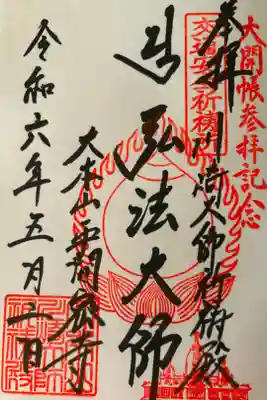 大開帳参拝記念
交通安全祈祷
奉拝 川崎大師祈祷殿
弘法大師
大本山平間寺
令和六年五月